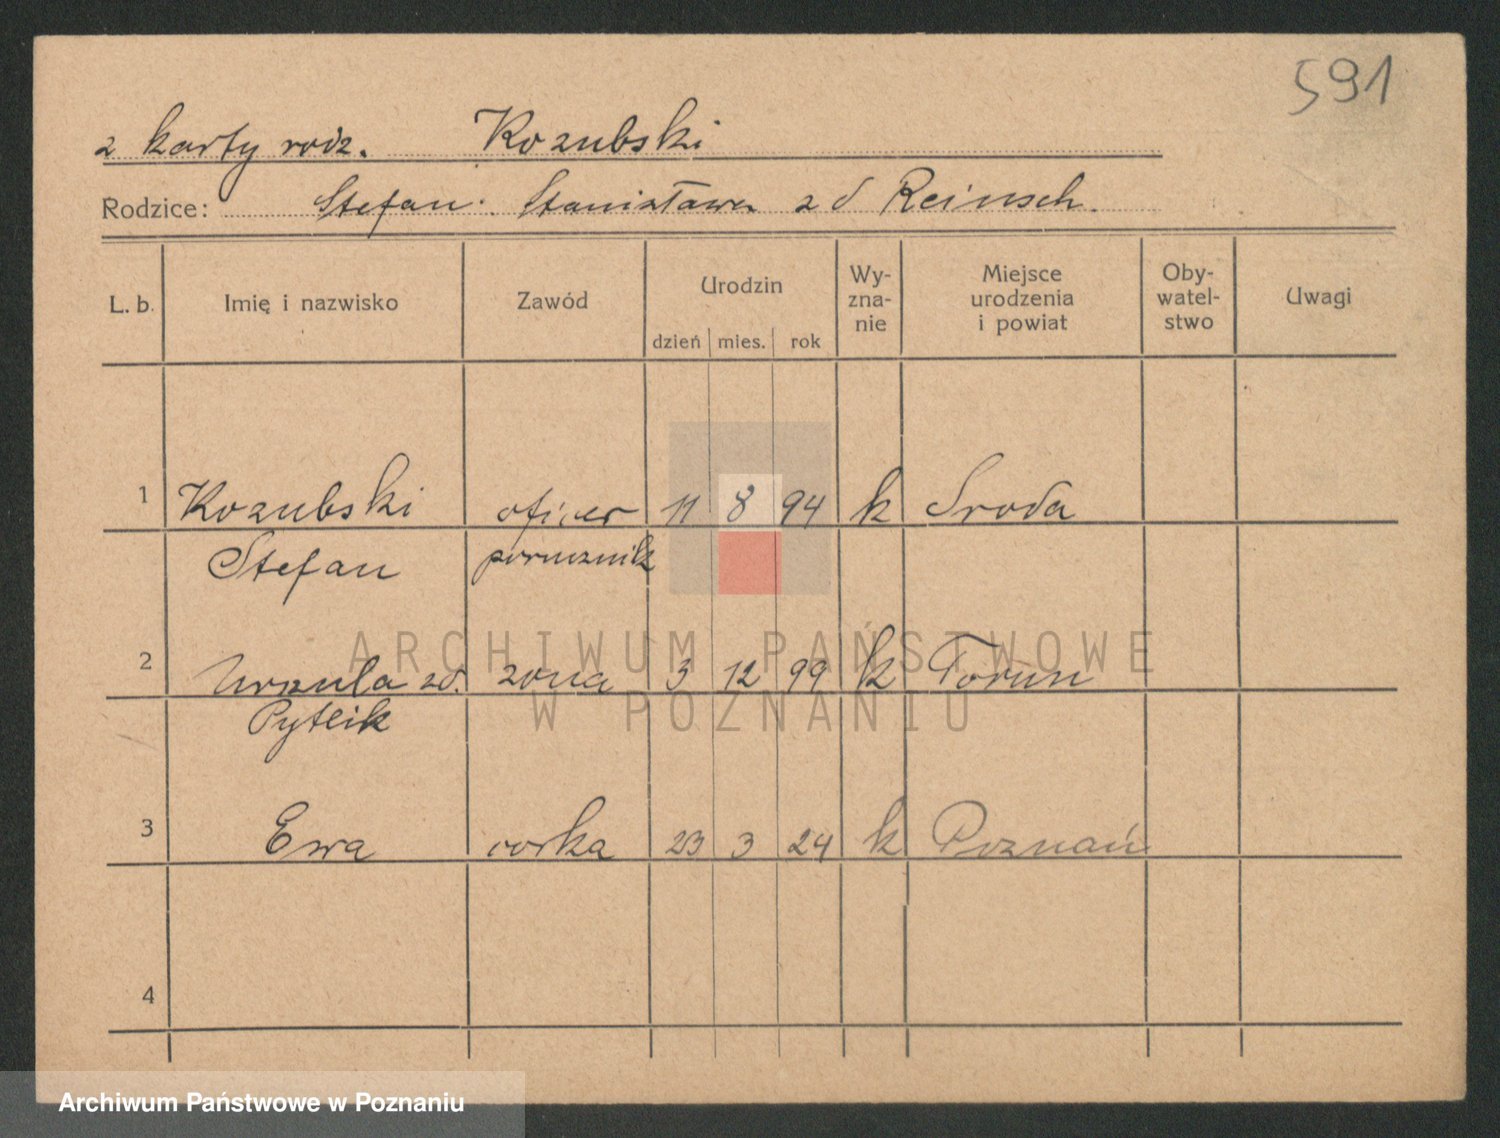 591
z karty rodz. Kozubski
Rodzice: Stefan. Stanisława z d Reinsch.
L. b. Imię i nazwisko Zawód Urodzin dzień mies. rok Wy-zna-nie Miejsce urodzenia i powiat Oby-watel-stwo Uwagi
1 Kozubski oficer 11 8 94 k Sroda
Stefan porucznik
2 Urszula zd. zona 3 12 99 k Torun
Pytlik
3 Ewa corka 23 3 24 k Poznań
4
ARCHIWUM PAŃSTWOWE
W POZNANIU
Archiwum Państwowe w Poznaniu